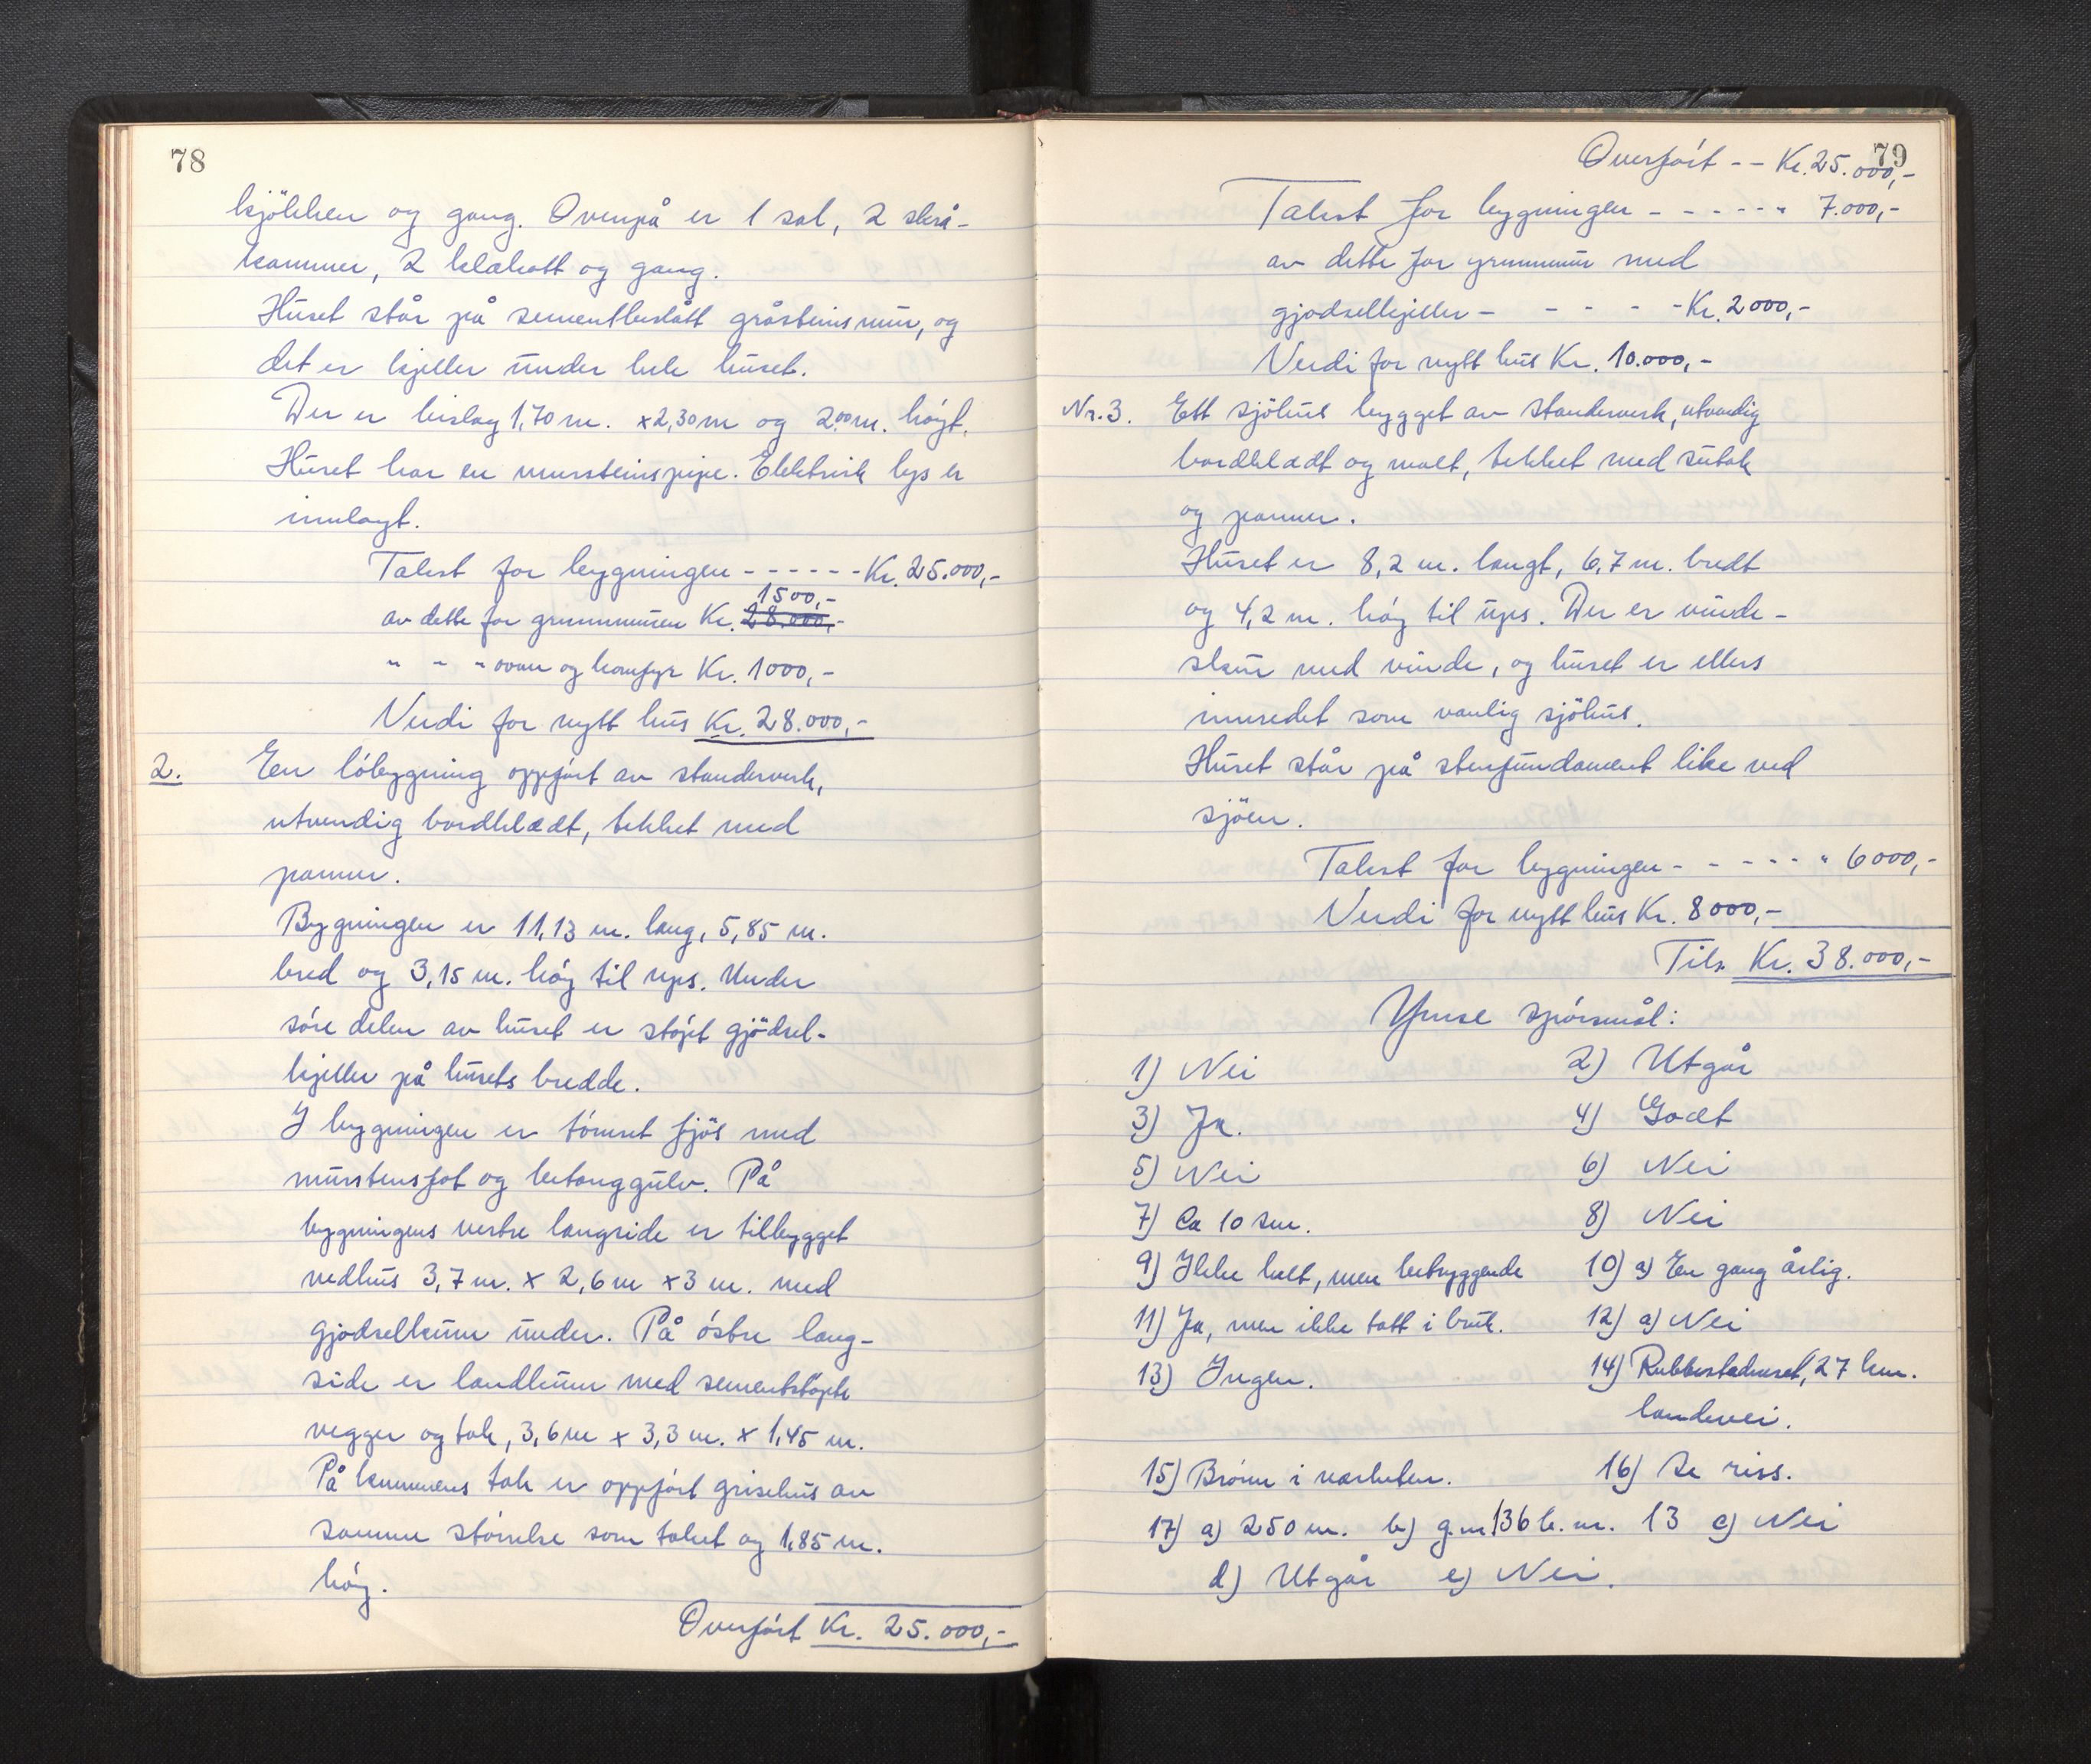 78
kjökken og gang. Ovenpå er 1 sal, 2 skrå-
kammer, 2 klækott og gang.
Huset står på sementbeslått gråsteinsmur, og
det er kjeller under hele huset.
Der er bislag 1,70 m. x 2,30 m og 2,00 m. högt.
Huset har en mursteinspipe. Elektrisk lys er
innlagt.
Takst for bygningen - - - - - - Kr. 25.000,-
1500,-
av dette for grunnmuren Kr. 28.000,-
" - " ovner og komfyr Kr. 1000,-
Verdi for nytt hus Kr. 28.000,-
2. En löbygning oppfört av standerverk,
utvendig bordklædt, tekket med
panner.
Bygningen er 11,13 m. lang, 5,85 m.
bred og 3,15 m. hög til ups. Under
söre delen av huset er stöpt gjödsel-
kjeller på husets bredde.
I bygningen er tömret fjös med
murstensfot og betonggulv. På
bygningens vestre langside er tilbygget
vedhus 3,7 m. x 2,6 m x 3 m. med
gjödselkum under. På östre lang-
side er landkum med sementstöpte
vegger og tak, 3,6 m x 3,3 m. x 1,45 m.
På kummens tak er oppfört grisehus av
samme störrelse som taket og 1,85 m.
hög.
Overfört Kr. 25.000,-
79
Overfört - - Kr. 25.000,-
Takst for bygningen - - - - - " 7.000,-
av dette for grunnmur med
gjödselkjeller - - - - - Kr. 2000,-
Verdi for nytt hus Kr. 10.000,-
Nr. 3. Ett sjöhus bygget av standerverk, utvendig
bordklædt og malt, tekket med sutak
og panner.
Huset er 8,2 m. langt, 6,7 m. bredt
og 4,2 m. hög til ups. Der er vinde-
skur med vinde, og huset er ellers
innredet som vanlig sjöhus.
Huset står på stenfundament like ved
sjöen.
Takst for bygningen - - - - - " 6000,-
Verdi for nytt hus Kr. 8000,-
Tils. Kr. 38.000,-
Ymse spörsmål:
1) Nei 2) Utgår
3) Ja. 4) Godt
5) Nei 6) Nei
7) Ca 10 km. 8) Nei
9) Ikke helt, men betryggende 10) a) En gang årlig.
11) Ja, men ikke tatt i bruk. 12) a) Nei
13) Ingen. 14) Rubbestadneset, 27 km.
landevei.
15) Brönn i nærheten. 16) Se riss.
17) a) 250 m. b) g.nr 136 b. nr. 13 c) Nei
d) Utgår e) Nei.